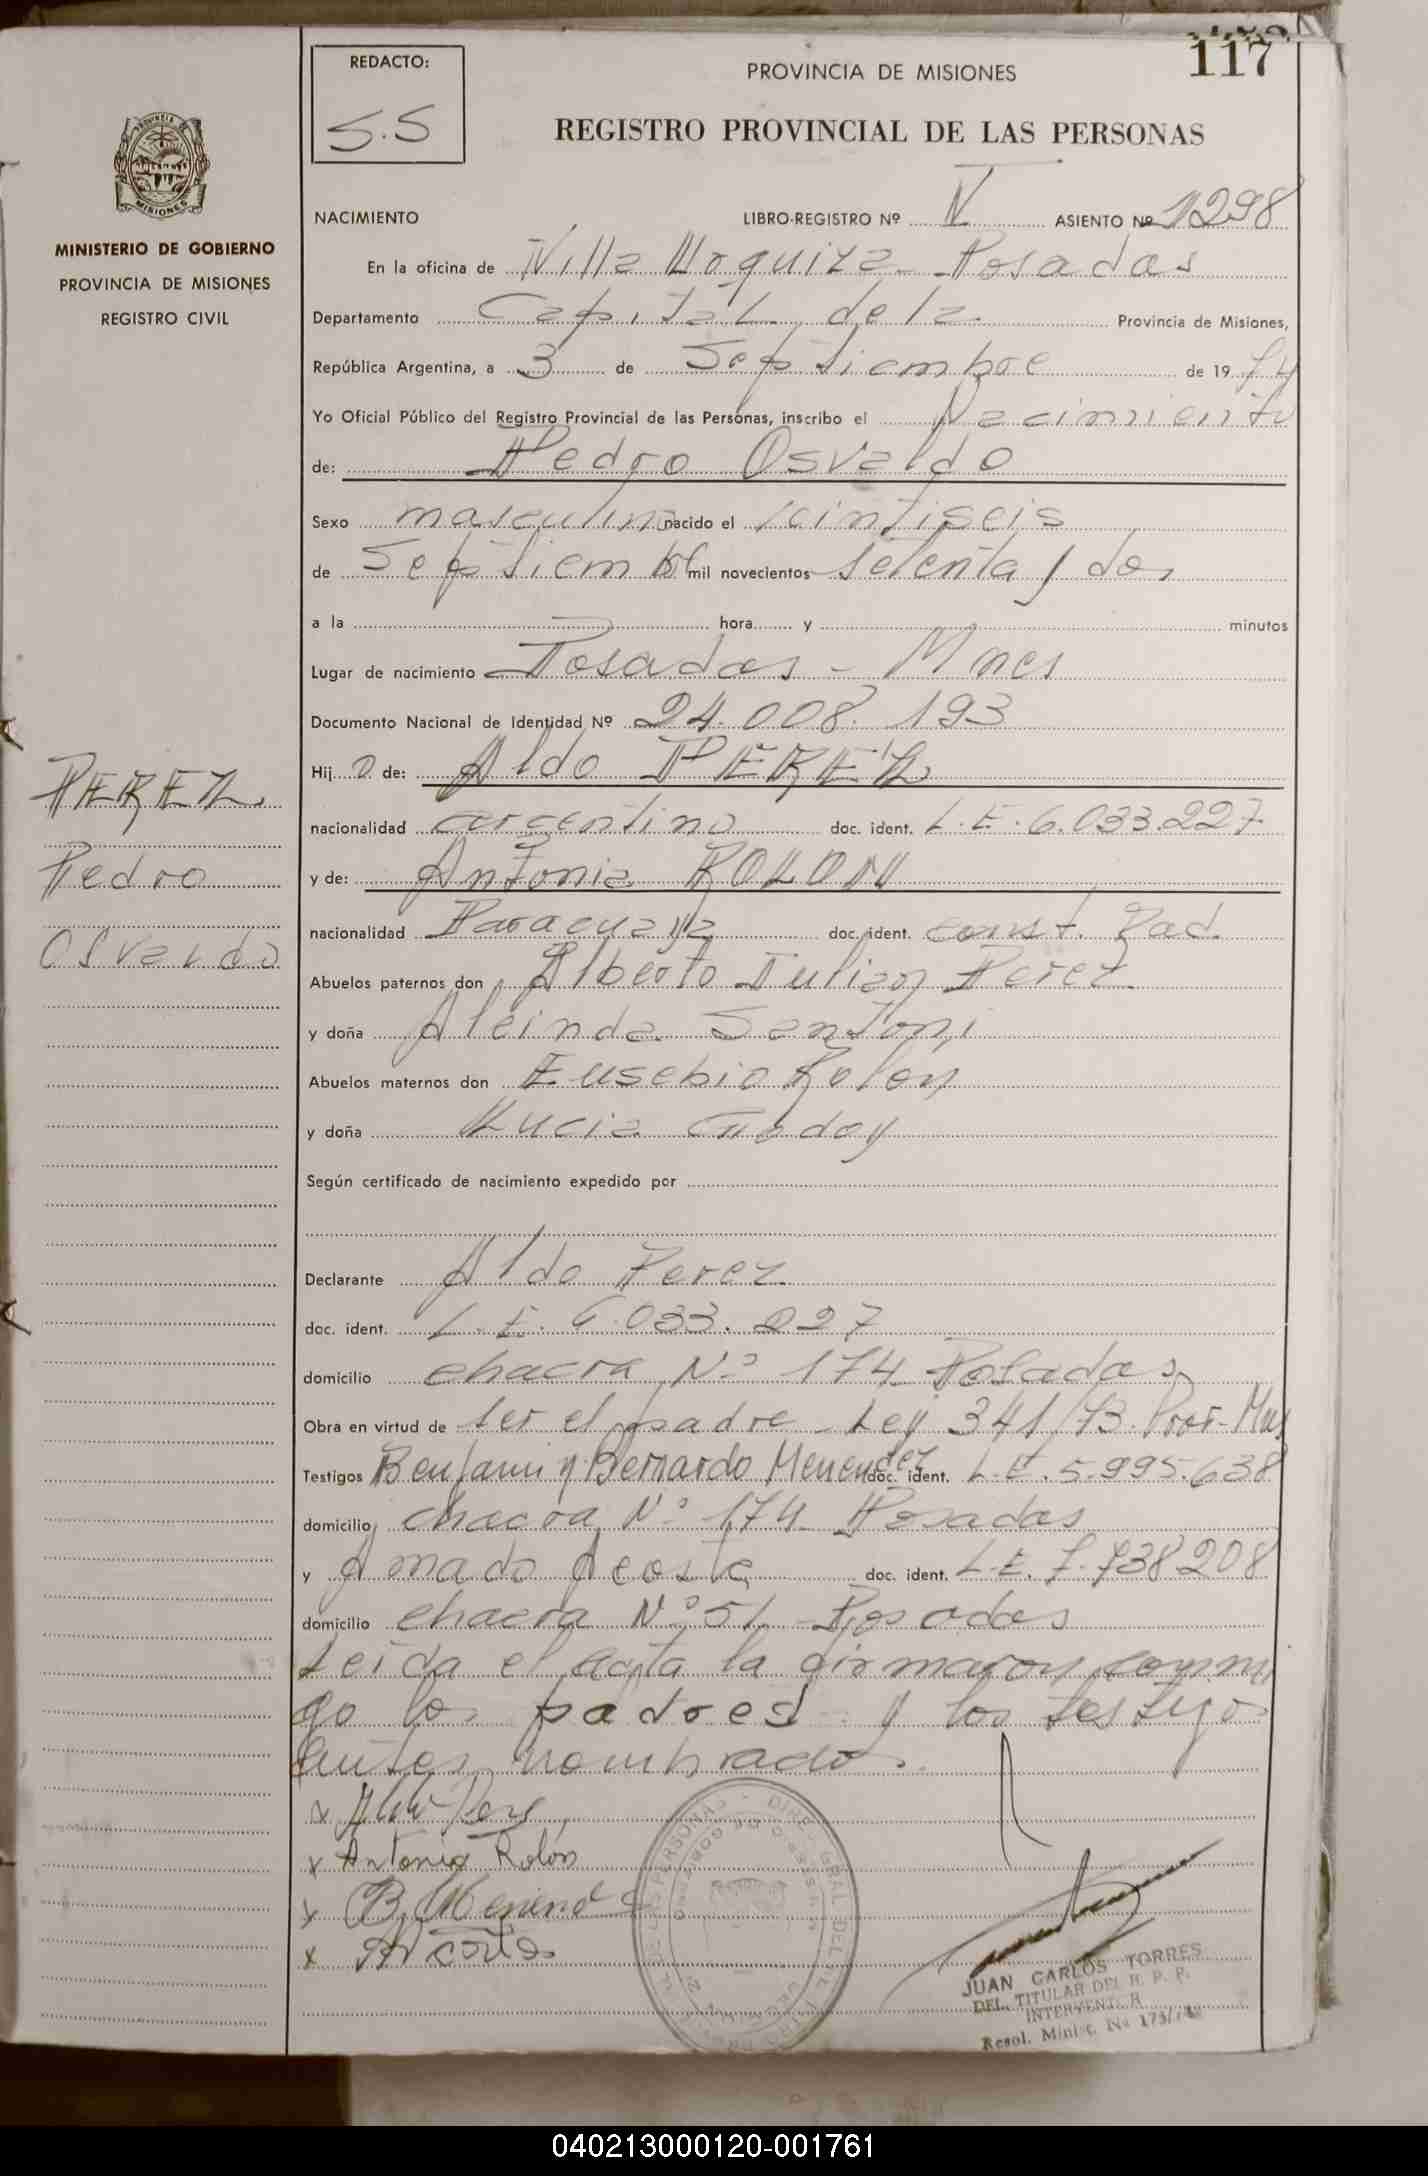 117
REDACTO:
S.S
PROVINCIA DE MISIONES
REGISTRO PROVINCIAL DE LAS PERSONAS
PROVINCIA DE
MISIONES
MINISTERIO DE GOBIERNO
PROVINCIA DE MISIONES
REGISTRO CIVIL
NACIMIENTO LIBRO-REGISTRO Nº V ASIENTO Nº 1298
En la oficina de Villa Urquiza Posadas
Departamento Capital de la Provincia de Misiones,
República Argentina, a 3 de Septiembre de 1974
Yo Oficial Público del Registro Provincial de las Personas, inscribo el Nacimiento
de: Pedro Osvaldo
Sexo masculino nacido el veintiseis
de Septiembre mil novecientos setenta y dos
a la hora y minutos
Lugar de nacimiento Posadas - Mnes
Documento Nacional de Identidad Nº 24.008.193
Hij o de: Aldo PEREZ
nacionalidad argentino doc. ident. L.E. 6.033.227
y de: Antonia ROLON
nacionalidad Paraguaya doc. ident. const. Rad.
Abuelos paternos don Alberto Julian Perez
y doña Alcinda Santoni
Abuelos maternos don Eusebio Rolon
y doña Lucia Godoy
Según certificado de nacimiento expedido por
Declarante Aldo Perez
doc. ident. L.E. 6.033.227
domicilio chacra Nº 174 Posadas
Obra en virtud de ser el padre - Ley 341/73. Prov. Mns
Testigos Benjamin Bernardo Menendez doc. ident. L.E. 5.995.638
domicilio chacra Nº 174 Posadas
y Amado Acosta doc. ident. L.E. 7.738208
domicilio chacra Nº 51 - Posadas
Leida el acta la firmaron conmi
go los padres y los testigos
antes nombrados.
PEREZ
Pedro
Osvaldo
x Aldo Perez
x Antonia Rolón
x B. Menendez
x A Costa
JUAN CARLOS TORRES
DEL. TITULAR DEL R. P. P.
INTERVENTOR
Resol. Minis. Nº 173/74
040213000120-001761